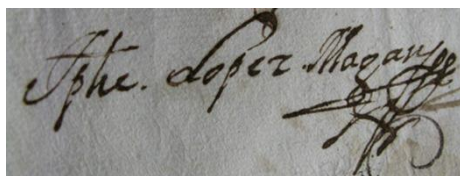 Jphe. Lopez Magan